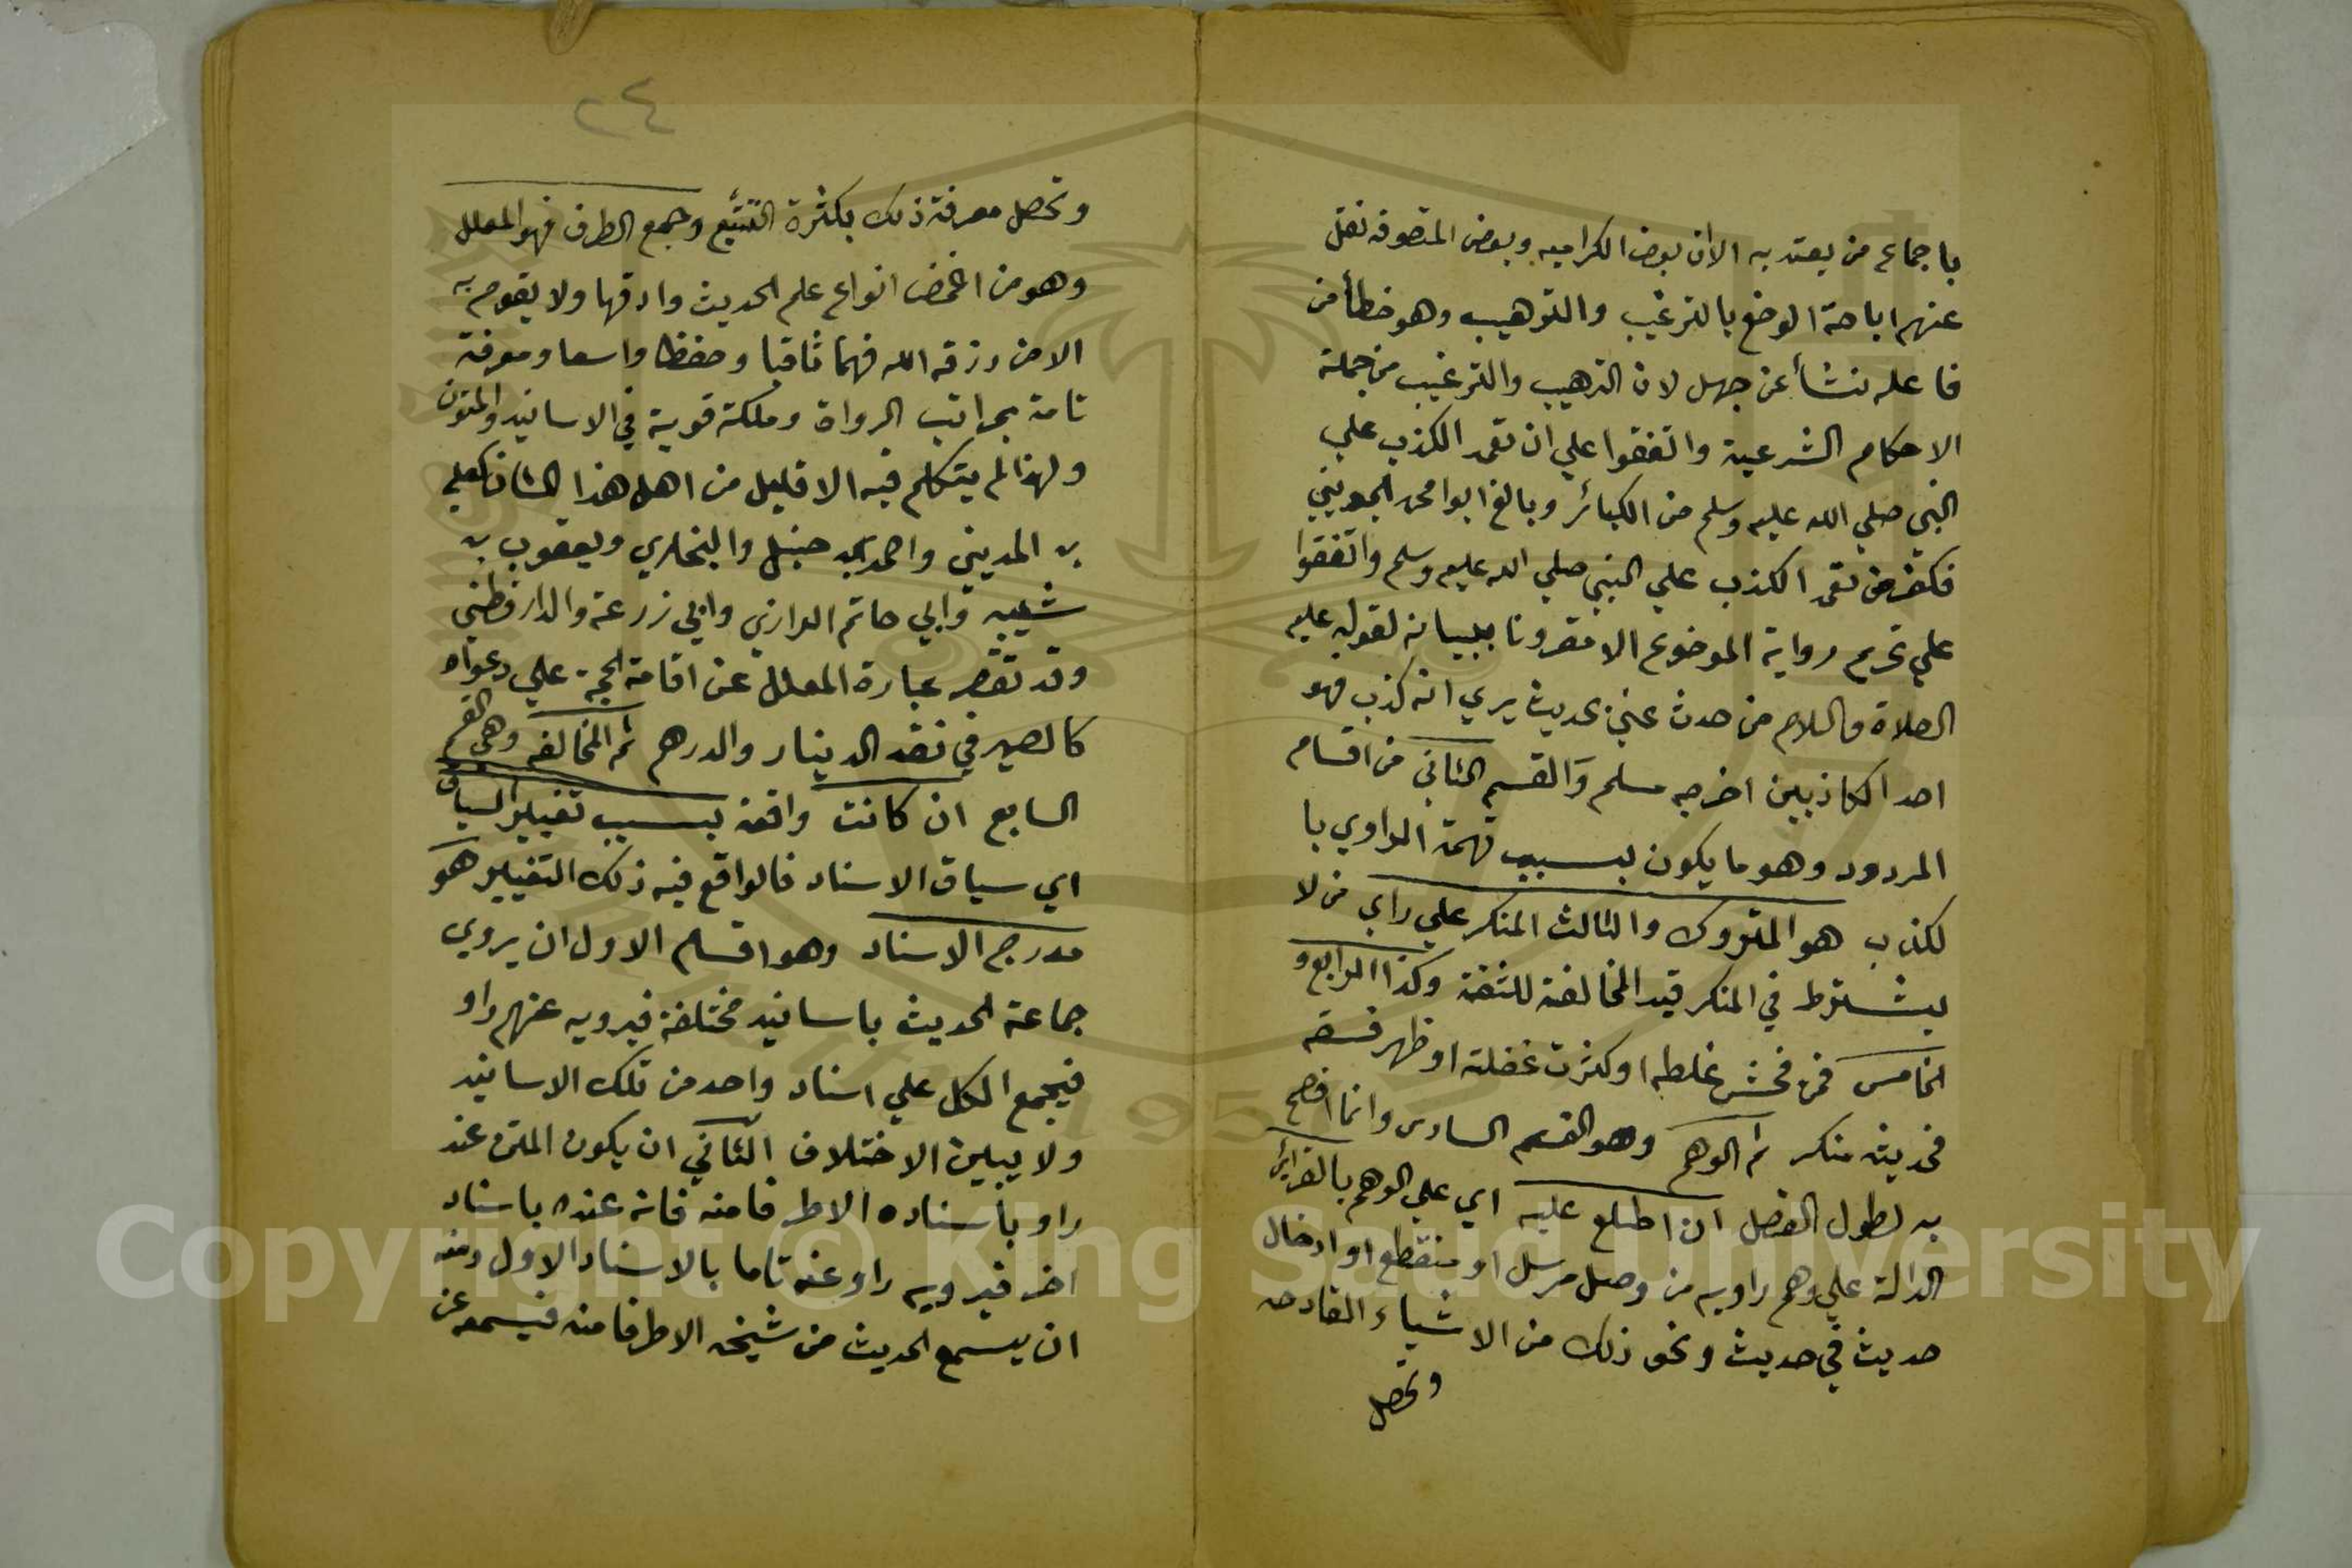 باجماع من يعتد به الا ان بعض الكراميه وبعض المتصوفه نقل
عنهم اباحة الوضع بالترغيب والترهيب وهو خطأ من
فاعله نشأ عن جهل لان الترهيب والترغيب من جملة
الاحكام الشرعية واتفقوا علي ان تعمد الكذب علي
النبي صلي الله عليه وسلم من الكبائر وبالغ ابوا محمد الجويني
فكفر من تعمد الكذب علي النبي صلي الله عليه وسلم واتفقوا
علي تحريم رواية الموضوع الا مقرونا ببيانه لقوله عليه
الصلاة والسلام من حدث عني بحديث يري انه كذب فهو
احد الكاذبين اخرجه مسلم والقسم الثاني من اقسام
المردود وهو ما يكون بسبب تهمة الراوي با
لكذب هو المتروك والثالث المنكر علي راي من لا
يشترط في المنكر قيد المخالفة للثقة وكذا الرابع و
الخامس فمن فحش غلطه او كثرت غفلته او ظهر فسقه
فحديثه منكر ثم الوهم وهو القسم السادس وانما افصح
به لطول الفصل ان اطلع عليه اي علي الوهم بالقرائن
الدالة علي وهم راويه من وصل مرسل او منقطع او ادخال
حديث في حديث ونحو ذلك من الاشياء القادحه
وتحصل
٢٤
وتحصل معرفة ذلك بكثرة التتبع وجمع الطرق فهو المعلل
وهو من اغمض انواع علم الحديث وادقها ولا يقوم به
الا من رزقه الله فهما ثاقبا وحفظا واسعا ومعرفة
تامة بمراتب الرواة وملكة قوية في الاسانيد والمتون
ولهذا لم يتكلم فيه الا قليل من اهل هذا الشان كعلي
بن المديني واحمد بن حنبل والبخاري ويعقوب بن
شيبه وابي حاتم الرازي وابي زرعة والدارقطني
وقد تقصر عبارة المعلل عن اقامة الحجة علي دعواه
كالصيرفي نقد الدينار والدرهم ثم المخالفه وهي القسم
السابع ان كانت واقعة بسبب تغيير السياق
اي سياق الاسناد فالواقع فيه ذلك التغيير هو
مدرج الاسناد وهو اقسام الاول ان يروي
جماعة الحديث باسانيد مختلفة فيرويه عنهم راو
فيجمع الكل علي اسناد واحد من تلك الاسانيد
ولا يبين الاختلاف الثاني ان يكون المتن عند
راو باسناده الا طرفا منه فانه عنده باسناد
اخر فيرويه راو عنه تاما بالاسناد الاول ومنه
ان يسمع الحديث من شيخه الا طرفا منه فيسمعه عن
Copyright © King Saud University